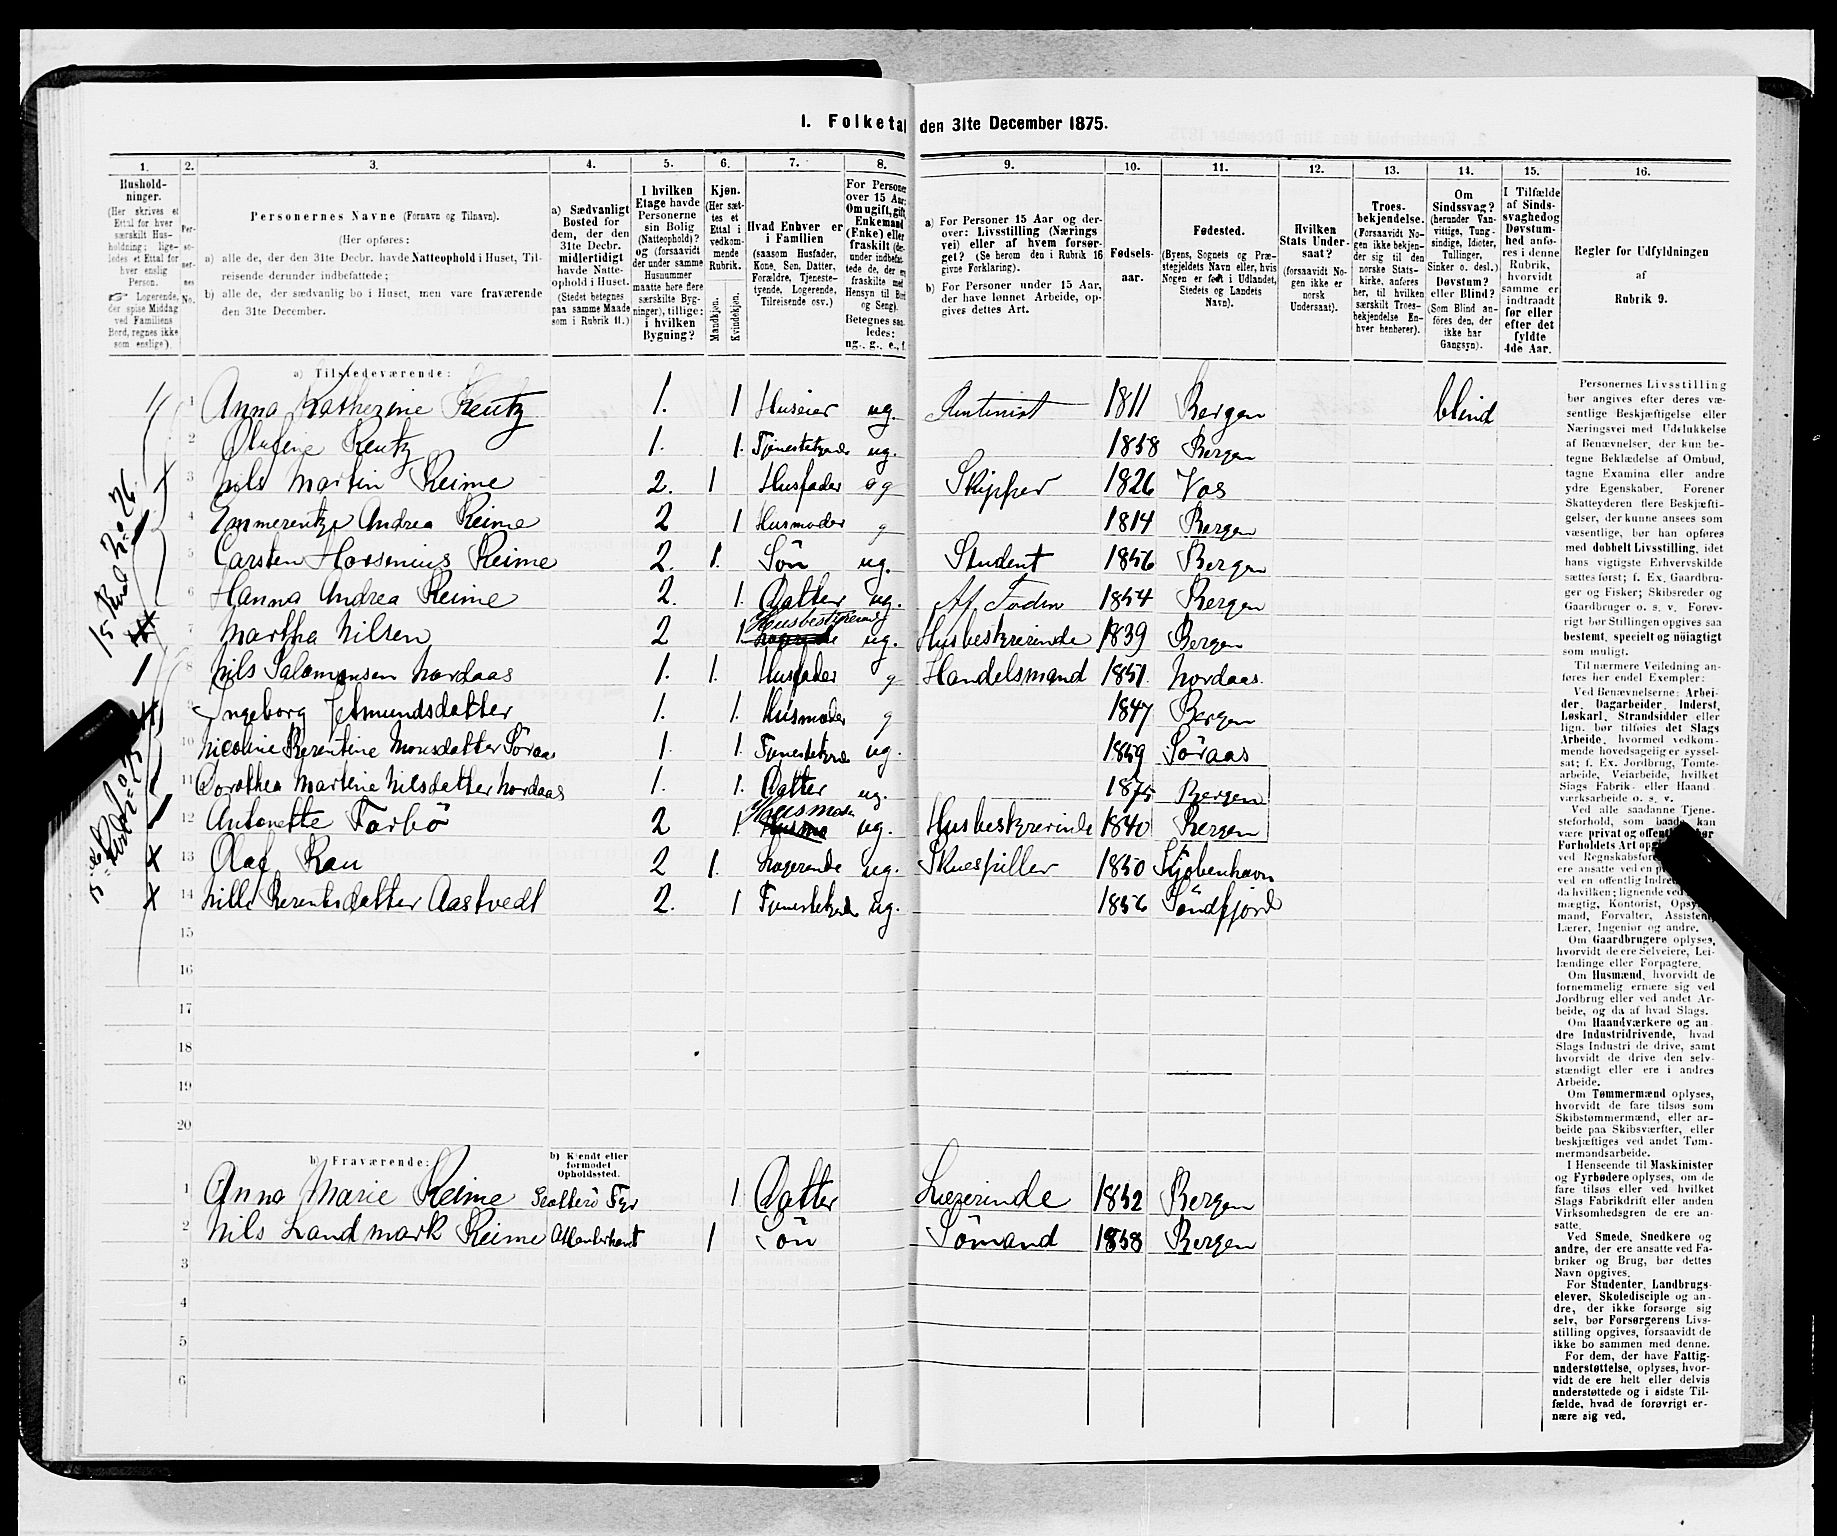 1. Folketal den 31te December 1875.
1. 2. 3. 4. 5. 6. 7. 8. 9. 10. 11. 12. 13. 14. 15. 16.
Hushold-
ninger.
(Her skrives et
Ettal for hver
særskilt Hus-
holdning; lige-
ledes et Ettal for
hver enslig
Person.
☞ Logerende,
der spise Middag
ved Familiens
Bord, regnes ikke
som enslige).
Per-
so-
ner-
nes
No.
Personernes Navne (Fornavn og Tilnavn).
(Her opføres:
a) alle de, der den 31te Decbr. havde Natteophold i Huset, Til-
reisende derunder indbefattede;
b) alle de, der sædvanlig bo i Huset, men vare fraværende
den 31te December.
a) Sædvanligt
Bosted for
dem, der den
31te Decbr.
midlertidigt
havde Natte-
ophold i Huset.
(Stedet betegnes
paa samme Maade
som i Rubrik 11.)
I hvilken
Etage havde
Personerne
sin Bolig
(Natteophold)?
og (forsaavidt
der under samme
Husnummer
maatte høre flere
særskilte Byg-
ninger), tillige:
i hvilken
Bygning?
Kjøn.
(Her sæt-
tes et
Ettal i
vedkom-
mende
Rubrik.
Mandkjøn.
Kvindekjøn.
Hvad Enhver er
i Familien
(saasom Husfader,
Kone, Søn, Datter,
Forældre, Tjeneste-
tyende, Logerende,
Tilreisende osv.)
For Personer
over 15 Aar:
Om ugift, gift,
Enkemand
(Enke) eller
fraskilt (der-
under indbefat-
tede de, der ere
fraskilte med
Hensyn til Bord
og Seng).
Betegnes saa-
ledes:
ug., g., e., f.
a) For Personer 15 Aar og der-
over: Livsstilling (Nærings-
vei) eller af hvem forsør-
get? (Se herom den i Rubrik 16
givne Forklaring).
b) For Personer under 15 Aar,
der have lønnet Arbeide, op-
gives dettes Art.
Fødsels-
aar.
Fødested.
(Byens, Sognets og Præ-
stegjeldets Navn eller, hvis
Nogen er født i Udlandet,
Stedets og Landets
Navn).
Hvilken
Stats Under-
saat?
(forsaavidt No-
gen ikke er
norsk
Undersaat).
Troes-
bekjendelse.
(Forsaavidt No-
gen ikke bekjen-
der sig til den
norske Stats-
kirke, anføres
her, til hvilken
særskilt Troes-
bekjendelse En-
hver henhører).
Om
Sindssvag?
(herunder Van-
vittige, Tung-
sindige, Idioter,
Tullinger,
Sinker o. desl.)
Døvstum?
eller Blind?
(Som Blind an-
føres den, der
ikke har
Gangsyn).
I Tilfælde
af Sinds-
svaghed og
Døvstum-
hed anfø-
res i denne
Rubrik,
hvorvidt
samme er
indtraadt
før eller
efter det
fyldte
4de Aar.
Regler for Udfyldningen
af
Rubrik 9.
a) Tilstedeværende:
1 1 Anna Katherine Reutz 1. 1 Huseier ug. Rentinist 1811 Bergen blind
2 Olufine Reutz 1. 1. Tjenestetyende ug. 1858 Bergen
3 Nils Martin Reime 2. 1 Husfader g Skipper 1826 Vos
4 Emmerentze Andrea Reime 2 1 Husmoder g 1814 Bergen
5 Carsten Reime 2. 1. Søn ug. Student 1856 Bergen
6 Hanna Andrea Reime 2. 1. Datter ug. Af Fadm 1854 Bergen
7 Martha Nilsen 2 1 Husbestyrerinde ug. Husbestyrerinde 1839 Bergen
1 8 Nils Salomonsen Nordaas 1. 1. Husfader g Handelsmand 1851 Nordaas.
9 Ingeborg Jetmundsdatter 1. 1. Husmoder g 1847 Bergen
10 Nicoline Berentine Monsdatter Söraas 1. 1. Tjenestetyende ug. 1859 Söraas
11 Dorothea Martine Nilsdatter Nordaas 1. 1. Datter ug. 1875 Bergen
12 Antonette Farbö 2 1. Husmoder ug. Husbestyrerinde 1840 Bergen
13 Olaf Rau 2 1. Logerende ug. Skuespiller 1850 Kjøbenhavn
14 Nille Berentsdatter Aastvedt 2. 1 Tjenestetyende ug. 1856 Söndfjord
15
16
17
18
19
20
b) Fraværende:
b) Kjendt eller
formodet
Opholdssted.
1 Anna Marie Reime Fyr 1 Datter Lærerinde 1852 Bergen
2 Nils Landmark Reime Atlanterhavet 1 Søn Sömand 1858 Bergen
3
4
5
6
Personernes Livsstilling
bør angives efter deres væ-
sentlige Beskjæftigelse eller
Næringsvei med Udelukkelse
af Benævnelser, der kun be-
tegne Beklædelse af Ombud,
tagne Examina eller andre
ydre Egenskaber. Forener
Skatteyderen flere Beskjæfti-
gelser, der kunne ansees som
væsentlige, bør han opføres
med dobbelt Livsstilling, idet
hans vigtigste Erhvervskilde
sættes først; f. Ex. Gaardbru-
ger og Fisker; Skibsreder og
Gaardbruger o. s. v. Forøv-
rigt bør Stillingen opgives saa
bestemt, specielt og nöiagtigt
som muligt.
Til nærmere Veiledning an-
føres her endel Exempler:
Ved Benævnelserne: Arbei-
der, Dagarbeider, Inderst,
Løskarl, Strandsidder eller
lign. bør tilføies det Slags
Arbeide, hvormed vedkom-
mende hovedsagelig er syssel-
sat; f. Ex. Jordbrug, Tomte-
arbeide, Veiarbeide, hvilket
Slags Fabrik- eller Haand-
værksarbeide o. s. v.
Ved alle saadanne Tjene-
steforhold, som baade kan
være privat og offentligt, bør
Forholdets Art
ved Regnskabsføre
ere ansatte ved en
ved en offentlig
da hvilken; lignende ved
mægtig, Kontorist, Opsyns-
mand, Forvalter, Assistent,
Lærer, Ingeniør og andre.
Om Gaardbrugere oplyses,
hvorvidt de ere Selveiere, Lei-
lændinge eller Forpagtere.
Om Husmænd, hvorvidt de
fornemmelig ernære sig ved
Jordbrug eller ved andet Ar-
beide, og da af hvad Slags.
Om Haandværkere og an-
dre Industridrivende, hvad
Slags Industri de drive, samt
hvorvidt de drive den selv-
stændigt eller ere i andres
Arbeide.
Om Tømmermænd oplyses,
hvorvidt de fare tilsøs som
Skibstømmermænd, eller ar-
beide paa Skibsværfter, eller
beskjæftiges ved andet Tøm-
mermandsarbeide.
I Henseende til Maskinister
og Fyrbødere oplyses, om de
fare tilsøs eller ved hvilket
Slags Fabrikdrift eller anden
Virksomhedsgren de ere an-
satte.
Ved Smede, Snedkere og
andre, der ere ansatte ved Fa-
briker og Brug, bør dettes
Navn opgives.
For Studenter, Landbrugs-
elever, Skoledisciple og an-
dre, der ikke forsørge sig
selv, bør Forsørgerens Livs-
stilling opgives, forsaavidt de
ikke bo sammen med denne.
For dem, der have Fattig-
understøttelse, oplyses, hvor-
vidt de ere helt eller delvis
understøttede og i sidste Til-
fælde, hvad de forøvrigt er-
nære sig ved.